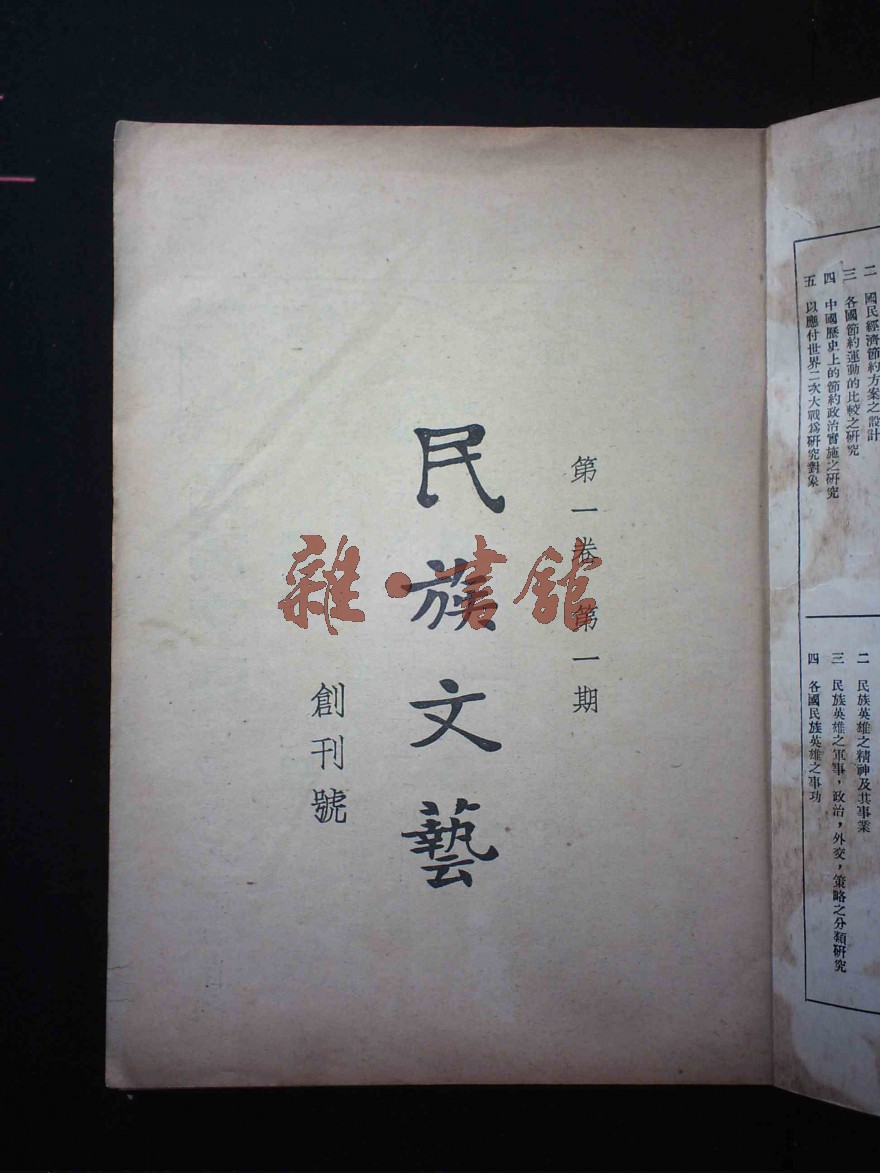 二　國民經濟節約方案之設計
三　各國節約運動的比較之研究
四　中國歷史上的節約政治實施之研究
五　以應付世界二次大戰爲研究對象
二　民族英雄之精神及其事業
三　民族英雄之軍事，政治，外交，策略之分類研究
四　各國民族英雄之事功
第一卷　第一期
民族文藝
創刊號
雜·書館